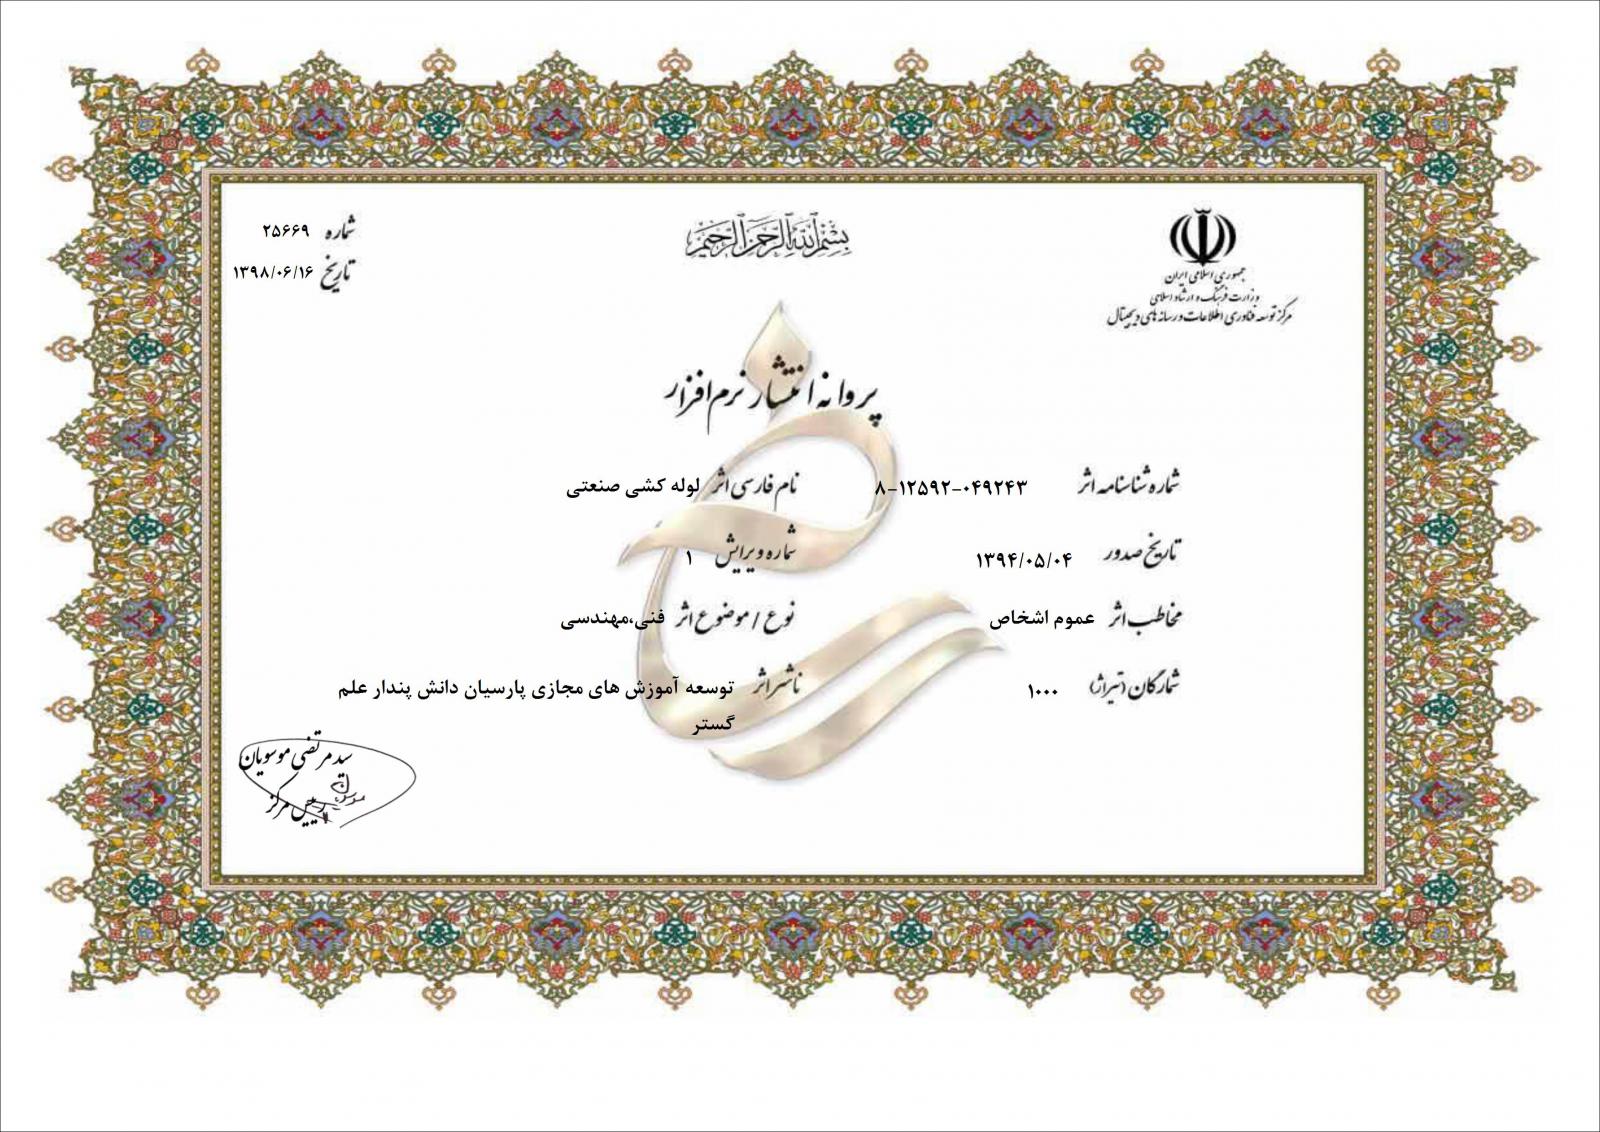 بسم الله الرحمن الرحیم
جمهوری اسلامی ایران
وزارت فرهنگ و ارشاد اسلامی
مرکز توسعه فناوری اطلاعات و رسانه های دیجیتال
شماره ۲۵۶۶۹
تاریخ ۱۳۹۸/۰۶/۱۶
پروانه انتشار نرم افزار
شماره شناسنامه اثر ۸-۱۲۵۹۲-۰۴۹۲۴۳ نام فارسی اثر لوله کشی صنعتی
تاریخ صدور ۱۳۹۴/۰۵/۰۴ شماره ویرایش ۱
مخاطب اثر عموم اشخاص نوع / موضوع اثر فنی،مهندسی
شمارگان (تیراژ) ۱۰۰۰ ناشر اثر توسعه آموزش های مجازی پارسیان دانش پندار علم
گستر
سید مرتضی موسویان
رییس مرکز